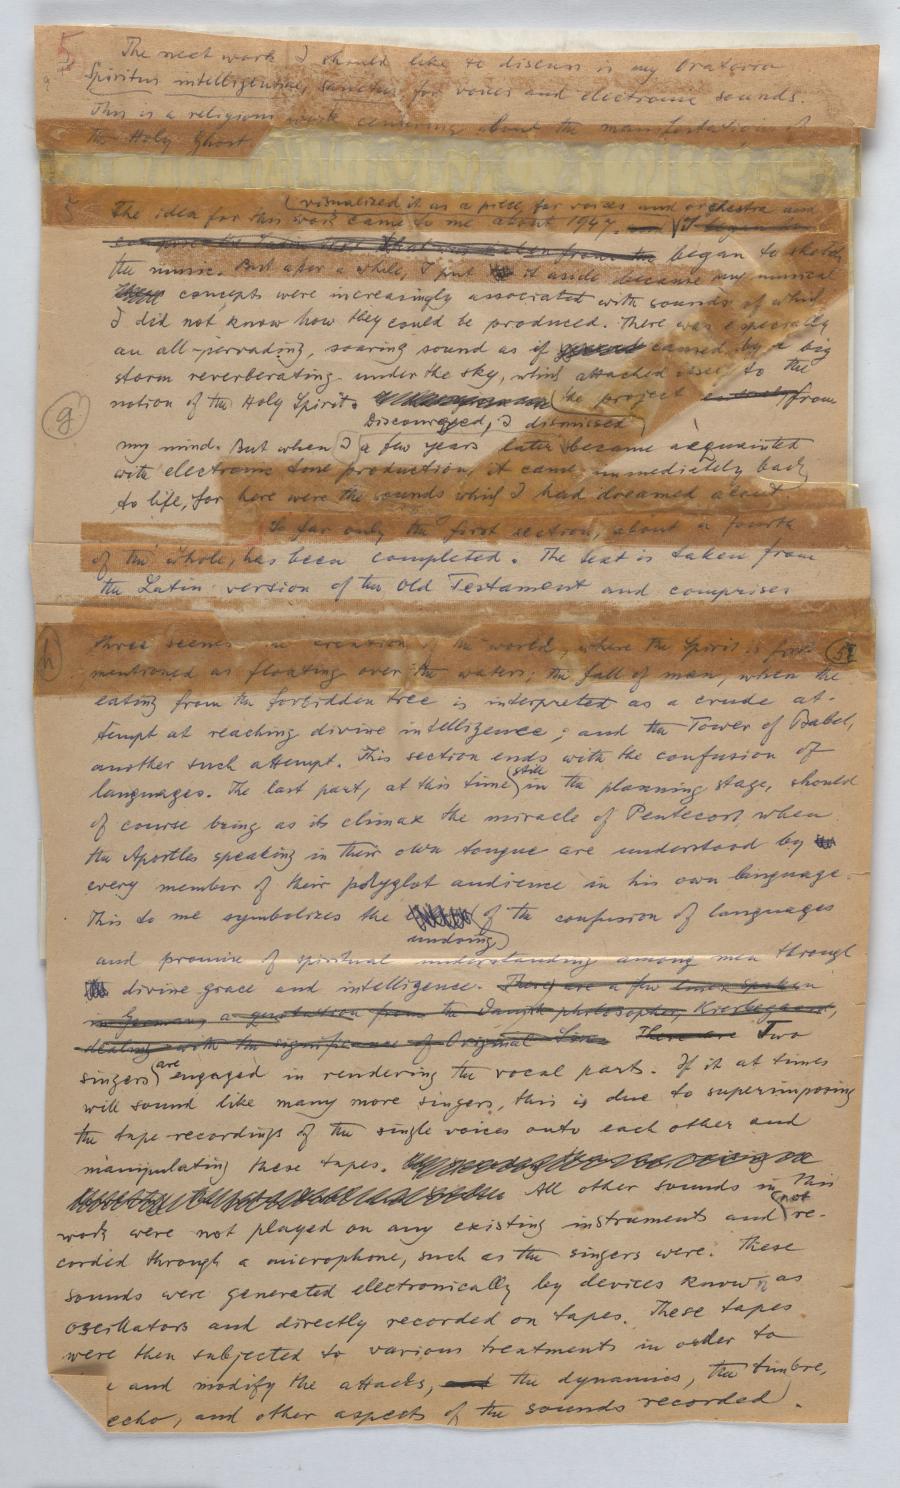 5 The next work I should like to discuss is my Oratorio
Spiritus intelligentiae, sanctus for voices and electronic sounds.
This is a religious work centering about the manifestations of
the Holy Ghost.
(visualized it as a piece for voices and orchestra and
5 The idea for this work came to me about 1947. I began to
began to sketch
the music. But after a while, I put it aside because my musical
concepts were increasingly associated with sounds of which
I did not know how they could be produced. There was especially
an all-pervading, soaring sound as if caused by a big
storm reverberating under the sky, which attached itself to the
notion of the Holy Spirit. the project from
g Discouraged, I dismissed
my mind. But when I a few years later became acquainted
with electronic tone production, it came immediately back
to life, for here were the sounds which I had dreamed about.
So far only the first section, about a fourth
of the whole, has been completed. The text is taken from
the Latin version of the Old Testament and comprises
h three scenes: the creation of the world, where the Spirit is first 5a
mentioned as floating over the waters; the fall of man, when the
eating from the forbidden tree is interpreted as a crude at-
tempt at reaching divine intelligence; and the Tower of Babel,
another such attempt. This section ends with the confusion of
languages. The last part, at this time still in the planning stage, should
of course bring as its climax the miracle of Pentecost, when
the Apostles speaking in their own tongue are understood by
every member of their polyglot audience in his own language.
This to me symbolizes the of the confusion of languages
undoing
and promise of spiritual understanding among men through
divine grace and intelligence. There are a few lines spoken
in German, a quotation from the Danish philosopher Kierkegaard,
dealing with the significance of Original Sin. There are Two
singers are engaged in rendering the vocal parts. If it at times
will sound like many more singers, this is due to superimposing
the tape recordings of the single voices onto each other and
manipulating these tapes.
All other sounds in this
work were not played on any existing instruments and not re-
corded through a microphone, such as the singers were. These
sounds were generated electronically by devices known as
oscillators and directly recorded on tapes. These tapes
were then subjected to various treatments in order to
and modify the attacks, and the dynamics, the timbre,
echo, and other aspects of the sounds recorded.